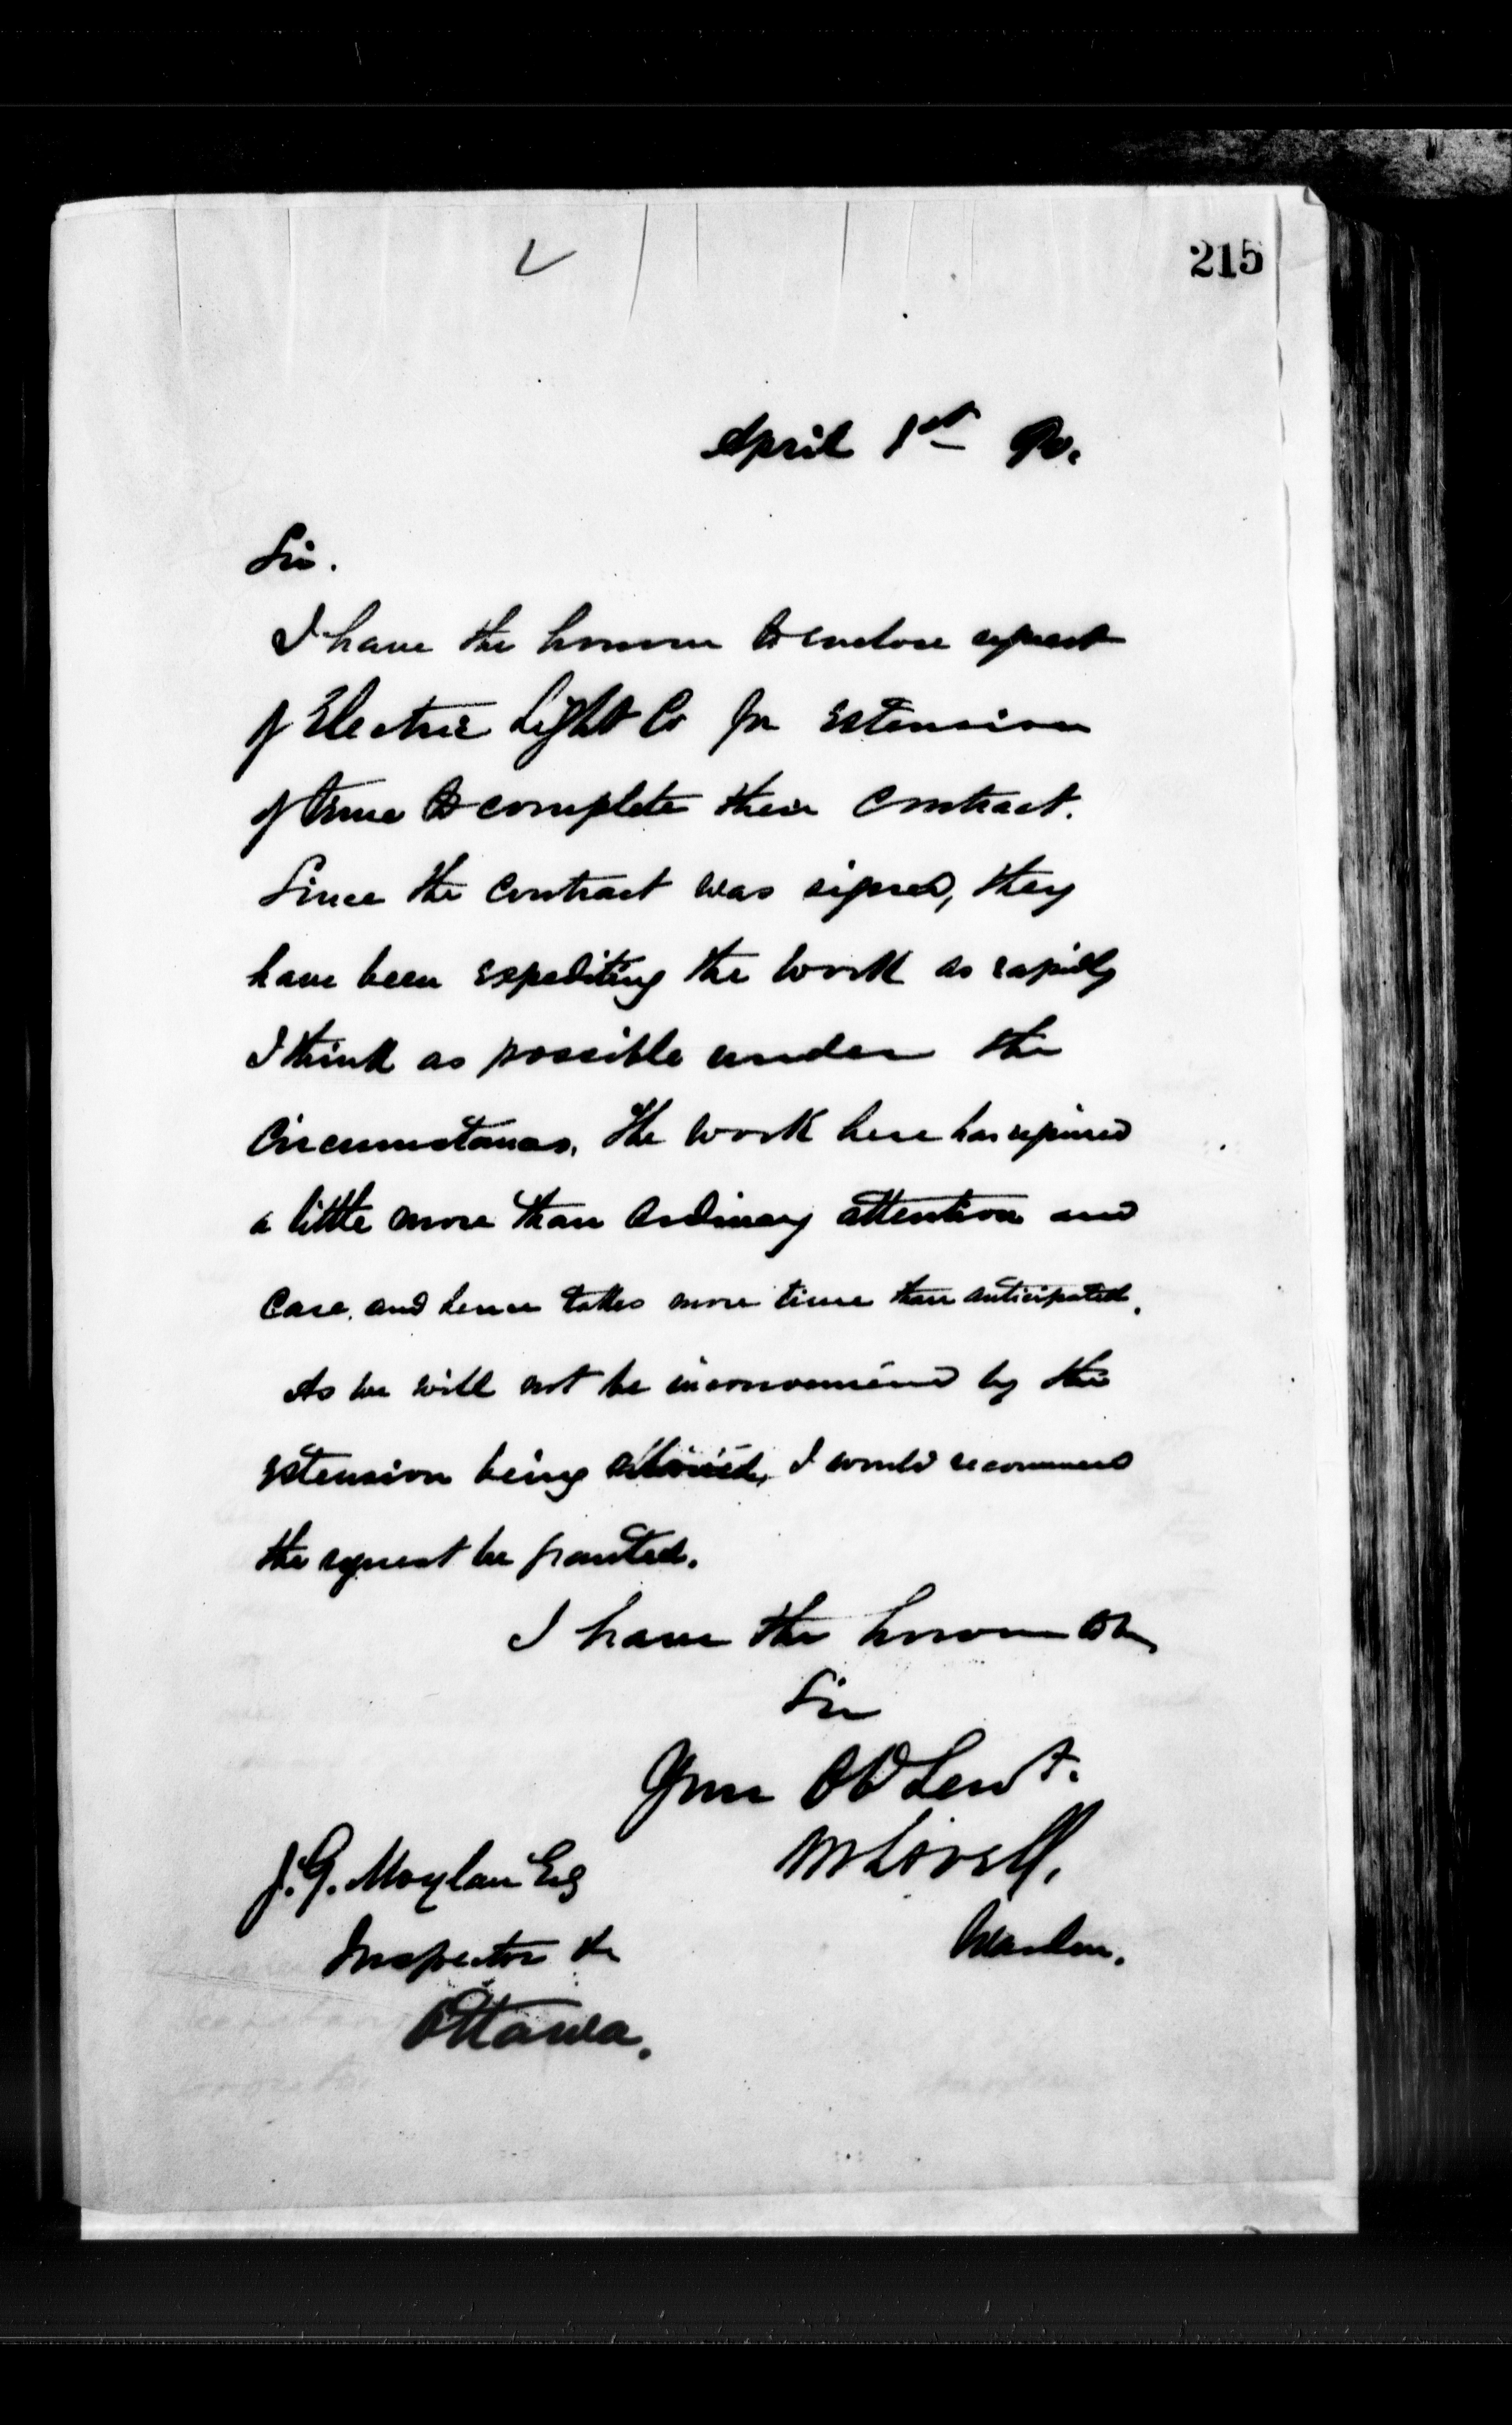 215
April 1st 90.
Sir.
I have the honour to enclose request
of Electric Light Co for extension
of time to complete their contract.
Since the contract was signed, they
have been expediting the work as rapidly
I think as possible under the
Circumstances. The work here has required
a little more than ordinary attention and
Care. and hence takes more time than anticipated.
As we will not be inconvenienced by the
extension being allowed, I would recommend
the request be granted.
I have the honour to be,
Sir
Your Obt Servt.
M Lavell,
Warden.
J. G. Moylan Esq
Inspector &c
Ottawa.